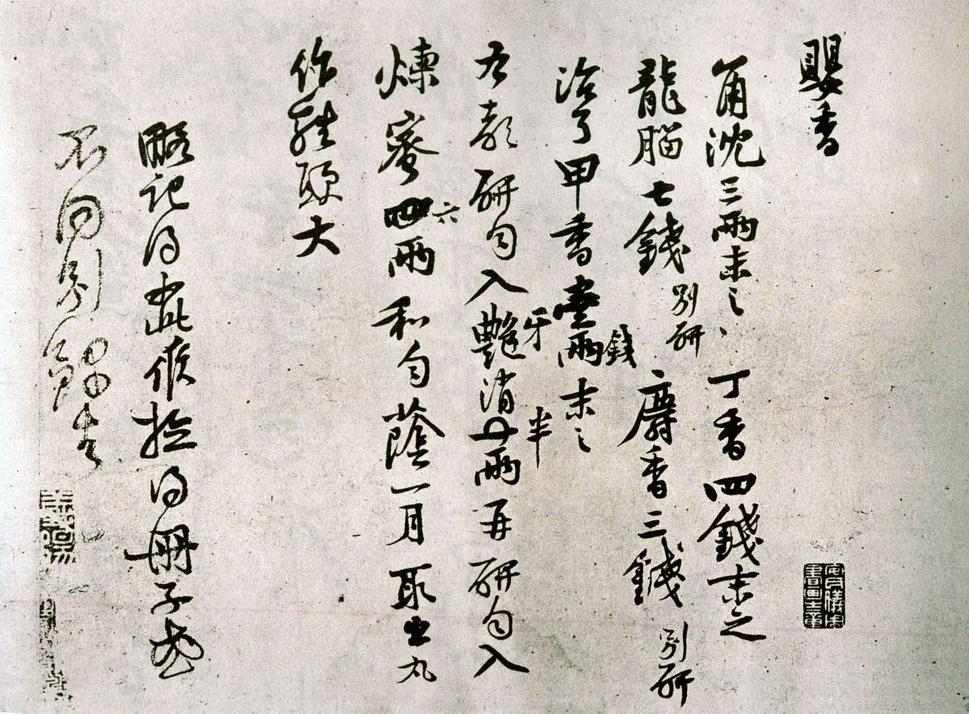 嬰香
角沈三兩末之丁香四錢末之
龍腦七錢別研麝香三錢別研
治了甲香壹兩錢末之
右都研勻入艷牙消一半兩再研勻入
煉蜜四六兩和勻蔭一月取出丸
作雞頭大
略記得如此候檢得冊子或
不同別錄去